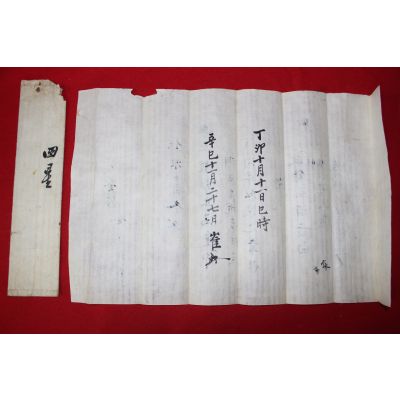 丁卯十月十一日巳時
辛巳十一月二十七日 崔
四星